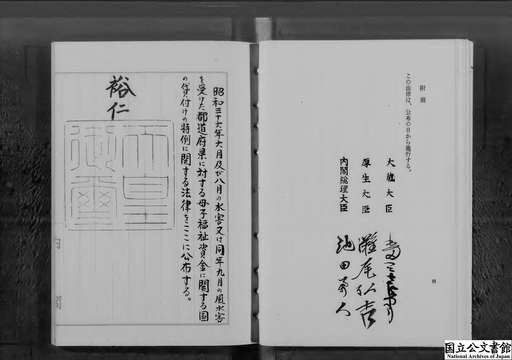 附則
この法律は、公布の日から施行する。
大蔵大臣
厚生大臣 灘尾弘吉
内閣総理大臣 池田勇人
四
昭和三十六年六月及び八月の水害又は同年九月の風水害
を受けた都道府県に対する母子福祉資金に関する国
の貸付けの特例に関する法律をここに公布する。
裕仁
天皇
御璽
国立公文書館
National Archives of Japan